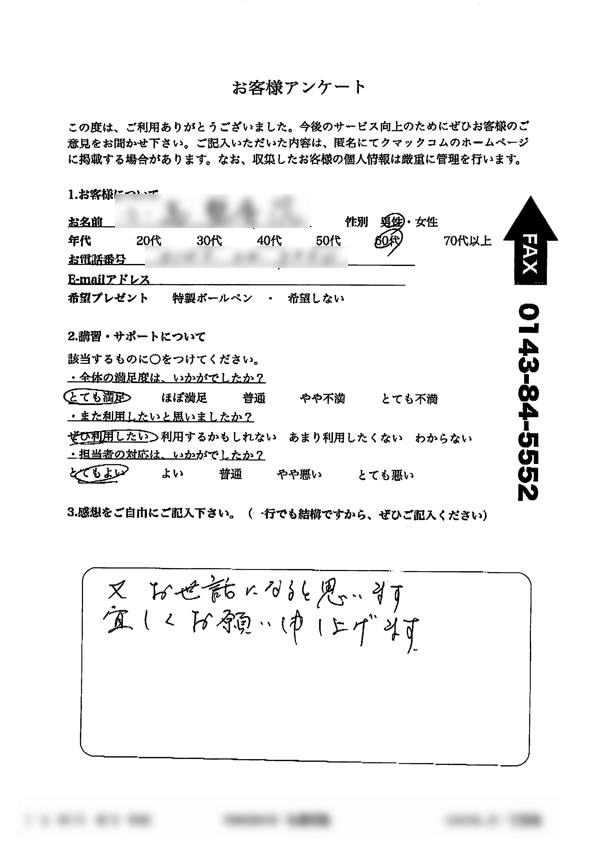 お客様アンケート
この度は、ご利用ありがとうございました。今後のサービス向上のためにぜひお客様のご
意見をお聞かせ下さい。ご記入いただいた内容は、匿名にてクマックコムのホームページ
に掲載する場合があります。なお、収集したお客様の個人情報は厳重に管理を行います。
1.お客様について
お名前 性別 男性・女性
年代 20代 30代 40代 50代 60代 70代以上
お電話番号
E-mailアドレス
希望プレゼント 特製ボールペン ・ 希望しない
2.講習・サポートについて
該当するものに○をつけてください。
・全体の満足度は、いかがでしたか?
とても満足 ほぼ満足 普通 やや不満 とても不満
・また利用したいと思いましたか?
ぜひ利用したい 利用するかもしれない あまり利用したくない わからない
・担当者の対応は、いかがでしたか?
とてもよい よい 普通 やや悪い とても悪い
3.感想をご自由にご記入下さい。(一行でも結構ですから、ぜひご記入ください)
又お世話になると思います
宜しくお願い申し上げます
FAX 0143-84-5552